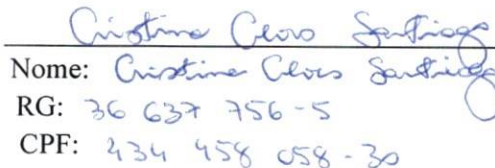 Cristina Claro Santiago
Nome: Cristina Claro Santiago
RG: 36 637 756-5
CPF: 434 458 058-30